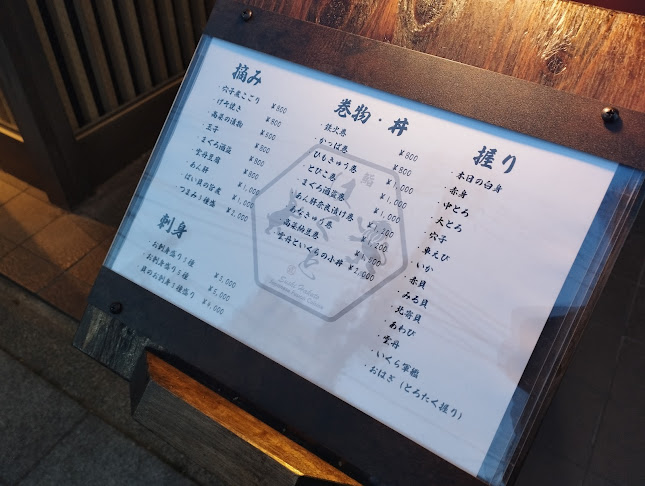 摘み
・穴子煮こごり ¥800
・げそ焼き ¥800
・高菜の漬物 ¥500
・玉子 ¥800
・まぐろ酒盗 ¥800
・雲丹豆腐 ¥1,000
・あん肝 ¥1,000
・ばい貝の旨煮 ¥1,000
・つまみ3種盛 ¥2,000
刺身
・お刺身盛り3種 ¥3,000
・お刺身盛り5種 ¥5,000
・貝のお刺身3種盛り ¥4,000
巻物・丼
・鉄火巻 ¥800
・かっぱ巻 ¥500
・ひもきゅう巻 ¥1,000
・とびこ巻
・まぐろ酒盗巻
・あん肝奈良漬け巻
・あなきゅう巻
・高菜納豆巻
・雲丹といくらの小丼 ¥2,000
握り
・本日の白身
・赤身
・中とろ
・大とろ
・穴子
・車えび
・いか
・赤貝
・みる貝
・北寄貝
・あわび
・雲丹
・いくら軍艦
・おはぎ（とろたく握り）